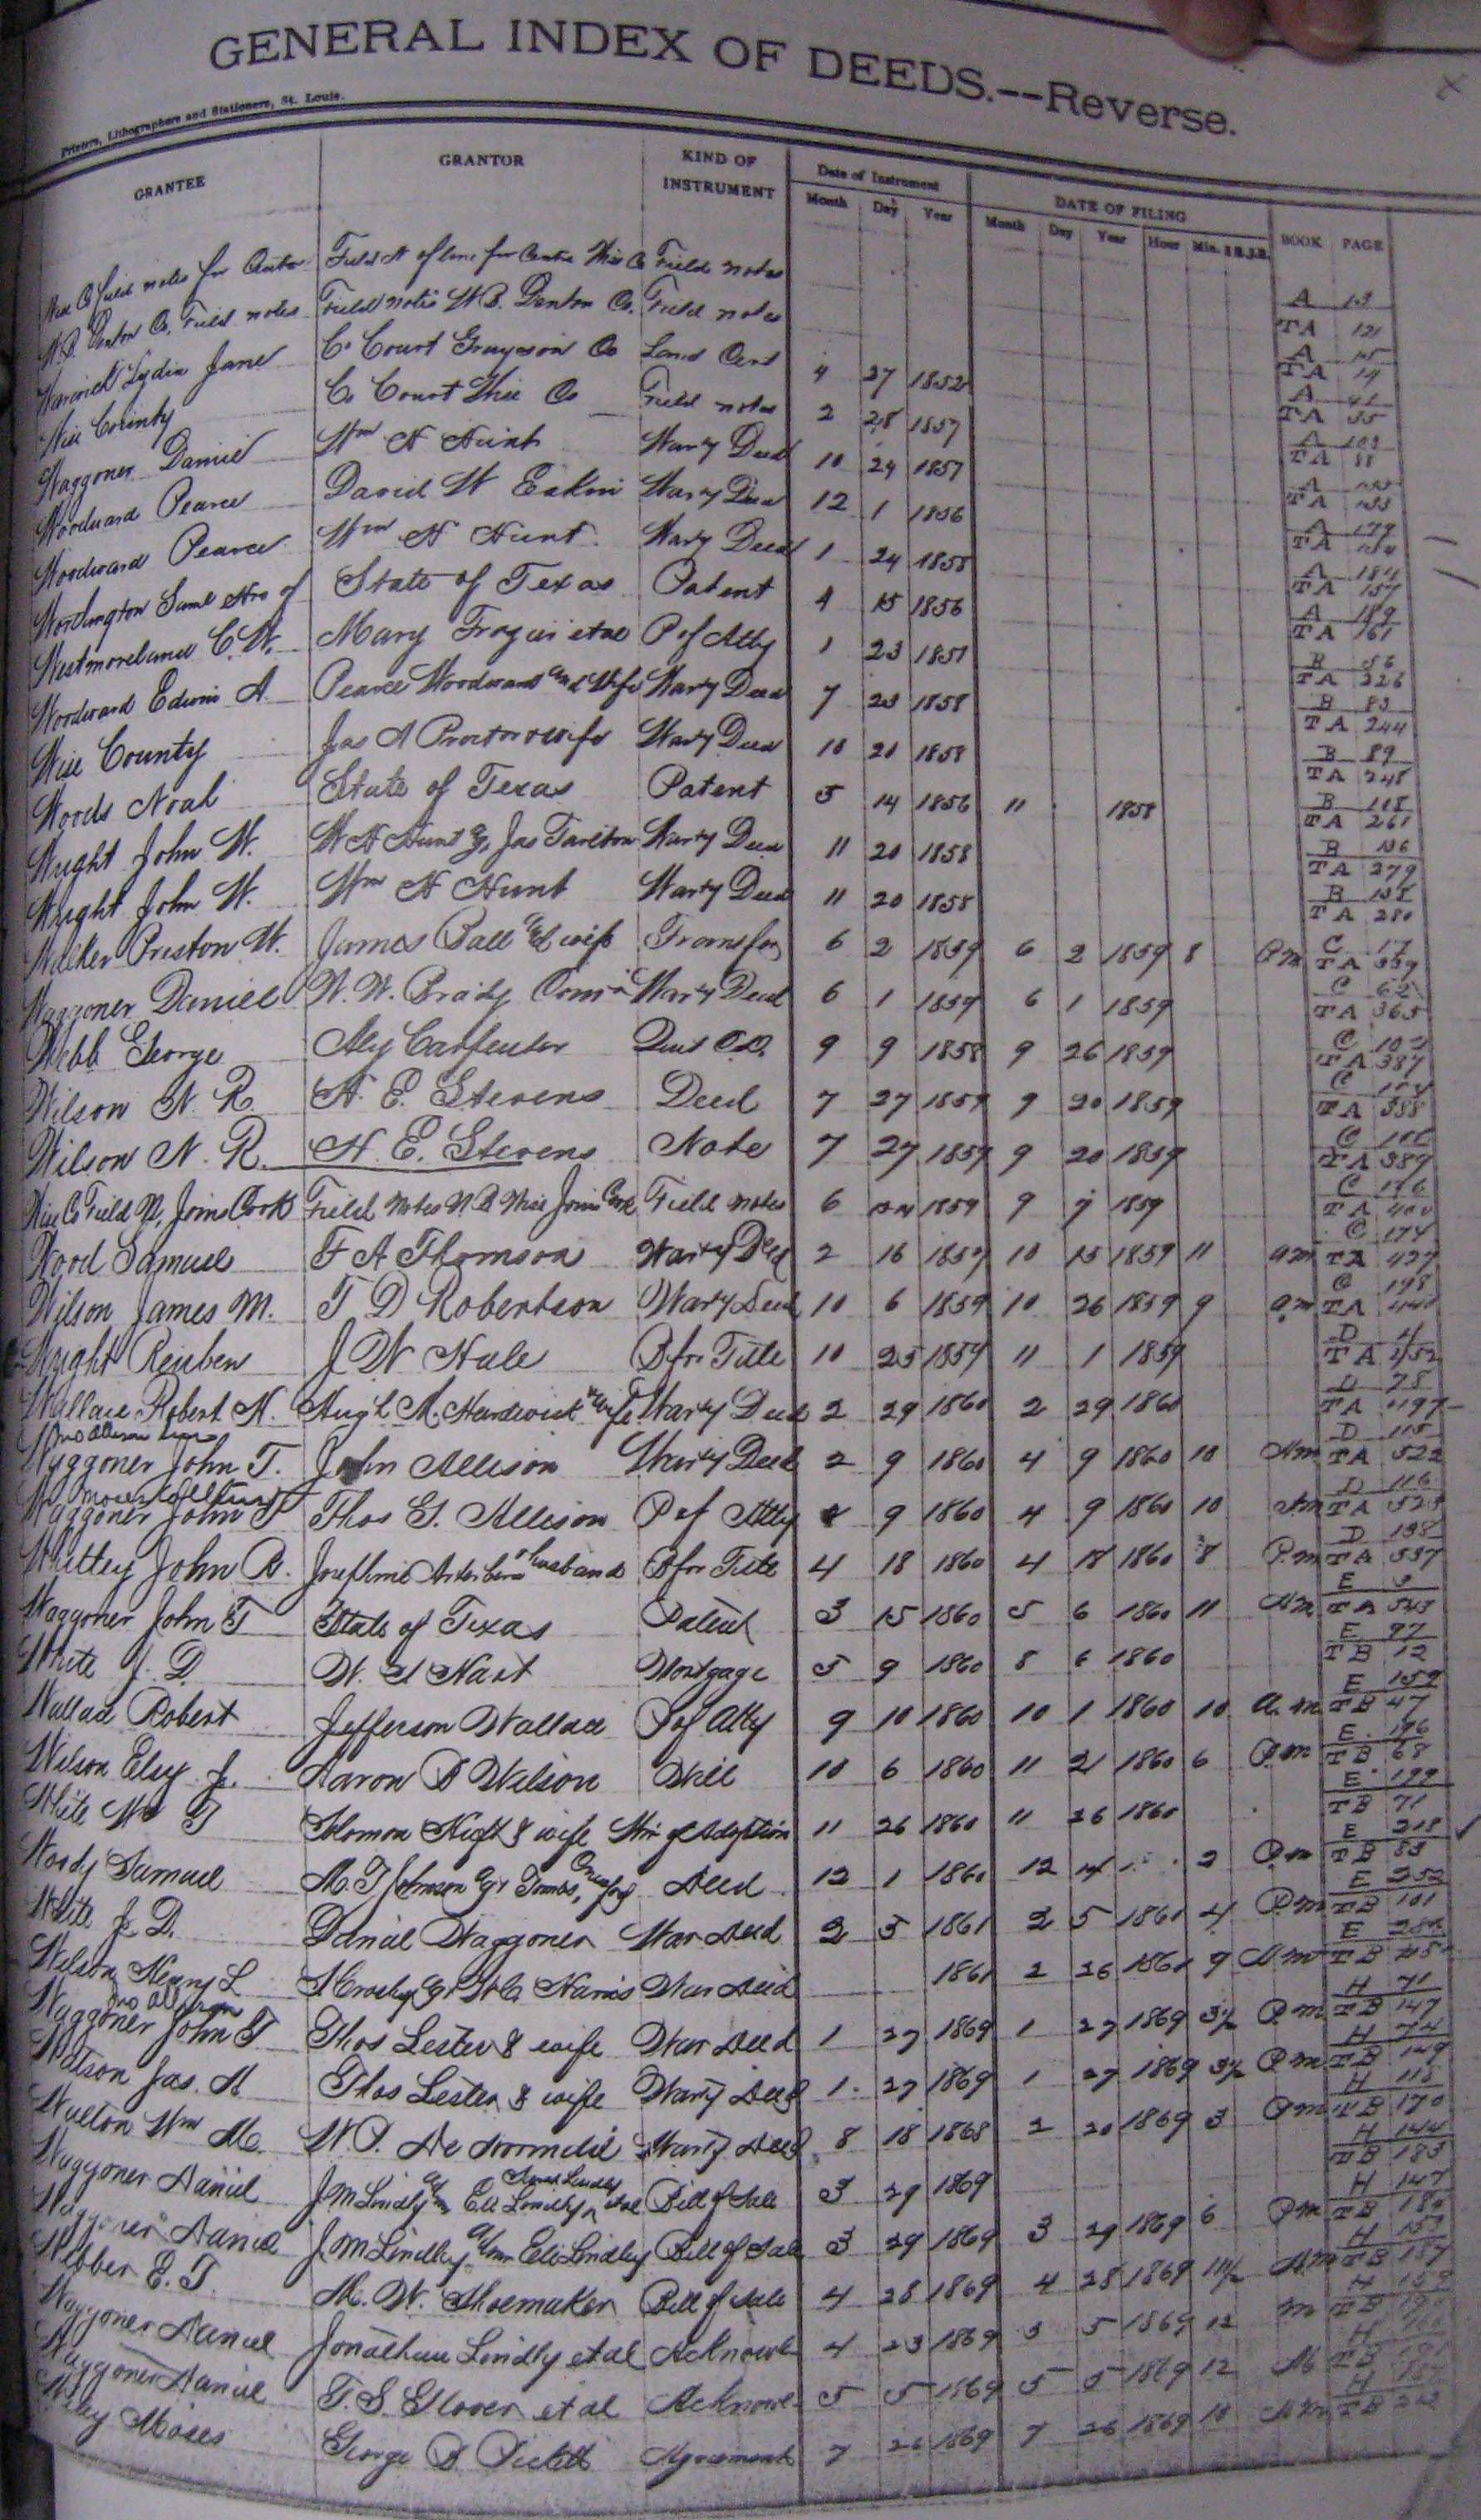 GENERAL INDEX OF DEEDS.--Reverse.
Printers, Lithographers and Stationers, St. Louis.
GRANTEE GRANTOR KIND OF INSTRUMENT Date of Instrument DATE OF FILING BOOK PAGE
Month Day Year Month Day Year Hour Min.
Wise Co field notes for Field N of line for Wise Co Field notes A 13
TA 12
W.B. Denton Co. Field notes Field notes W.B. Denton Co. Field notes A 15
TA 14
Warwick Lydia Jane Co Court Grayson Co Land Cert 4 27 1852 A 41
TA 35
Wise County Co Court Wise Co Field notes 2 28 1857 A 103
TA 88
Waggoner Daniel Wm H Hunt Warty Deed 10 24 1857 A
TA 133
Woodward Pearce David W Eakin Warty Deed 12 1 1856 A 179
TA
Woodward Pearce Wm H Hunt Warty Deed 1 24 1858 A 184
TA 157
Worthington Saml Hrs of State of Texas Patent 4 15 1856 A 189
TA 161
Westmoreland C.W. Mary et al P of Atty 1 23 1857 B 56
TA 226
Woodward Edwin A. Pearce Woodward and Wife Warty Deed 7 23 1858 B 83
TA 244
Wise County Jas A Proctor & wife Warty Deed 10 20 1858 B 89
TA 248
Woods Noal State of Texas Patent 5 14 1856 11 1858 B 108
TA 261
Wright John W. W H Hunt Gr Jas Tarlton Warty Deed 11 20 1858 B 136
TA 279
Wright John W. Wm H Hunt Warty Deed 11 20 1858 B 138
TA 280
Walker Preston W. James Ball and wife Transfer 6 2 1859 6 2 1859 8 P.m C 17
TA 339
Waggoner Daniel W. W. Brady Com Warty Deed 6 1 1859 6 1 1859 C 62
TA 365
Webb George Aley Carpenter Quit C.D. 9 9 1858 9 26 1859 C 102
TA 387
Wilson N. R. H. E. Stevens Deed 7 27 1859 9 20 1859 C 104
TA 388
Wilson N. R. H. E. Stevens Note 7 27 1859 9 20 1859 C 105
TA 389
Wise Co Field N, Joins Cook Field Notes N.B Wise Joins Cook Field notes 6 1859 9 7 1859 C 126
TA 400
Wood Samuel F A Thomson Warty Deed 2 16 1859 10 15 1859 11 a m C 174
TA 427
Wilson James M. T D Robertson Warty Deed 10 6 1859 10 26 1859 9 a m C 198
TA 440
Wright Reuben J W Hale B for Title 10 25 1859 11 1 1859 D 4
TA 452
Wallace Robert H. Hugh A. Hardwick & wife Warty Deed 2 29 1860 2 29 1860 D 78
TA 497
Waggoner John T. John Allison Warty Deed 2 9 1860 4 9 1860 10 A m D 115
TA 522
Waggoner John T Thos G. Allison P of Atty 9 1860 4 9 1860 10 A m D 116
TA 523
Whitley John B. Josephine & husband B for Title 4 18 1860 4 18 1860 8 P. m D 138
TA 537
Waggoner John T State of Texas Patent 3 15 1860 5 6 1860 11 A m E 3
TA 543
White J. D. W. Nast Mortgage 5 9 1860 8 6 1860 E 97
TB 12
Wallace Robert Jefferson Wallace P of Atty 9 10 1860 10 1 1860 10 a. m E 159
TB 47
Wilson Elsy J. Aaron B Wilson Will 10 6 1860 11 21 1860 6 P. m E 196
TB 68
White Wm T Solomon & wife of Adoption 11 26 1860 11 26 1860 E 199
TB 71
Woody Samuel M. T Johnson Gr Deed 12 1 1860 12 14 2 P. m E 218
TB 83
White J. D. Daniel Waggoner War Deed 2 5 1861 2 5 1861 4 P. m E 252
TB 101
Wilson Henry L Crosby Gr Harris War Deed 1861 2 26 1861 9 A m E
TB
Waggoner John T Thos Lester & wife War Deed 1 27 1869 1 27 1869 3½ P. m H 71
TB 147
Watson Jas. A Thos Lester & wife Warty Deed 1 27 1869 1 27 1869 3½ P m H 74
TB 149
Walton Wm M. W. P. Warty Deed 8 18 1868 2 20 1869 3 P m H 115
TB 170
Waggoner Daniel J M Lindly Eli Lindly et al Bill of Sale 3 29 1869 H 144
TB 183
Waggoner Daniel J. M Lindley Eli Lindley Bill of Sale 3 29 1869 3 29 1869 6 P m H 147
TB
Webber E. T. M. W. Shoemaker Bill of Sale 4 28 1869 4 28 1869 A m H
TB 187
Waggoner Daniel Jonathan Lindly et al Acknowl 4 23 1869 5 5 1869 12 m H
TB
Waggoner Daniel T. S. Glover et al Acknowl 5 5 1869 5 5 1869 12 M H
TB
Moses George B Pickett Agreement 7 26 1869 7 26 1869 10 H
TB